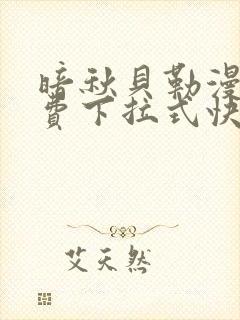 暗秋貝勒漫
費下拉式快
艾天然